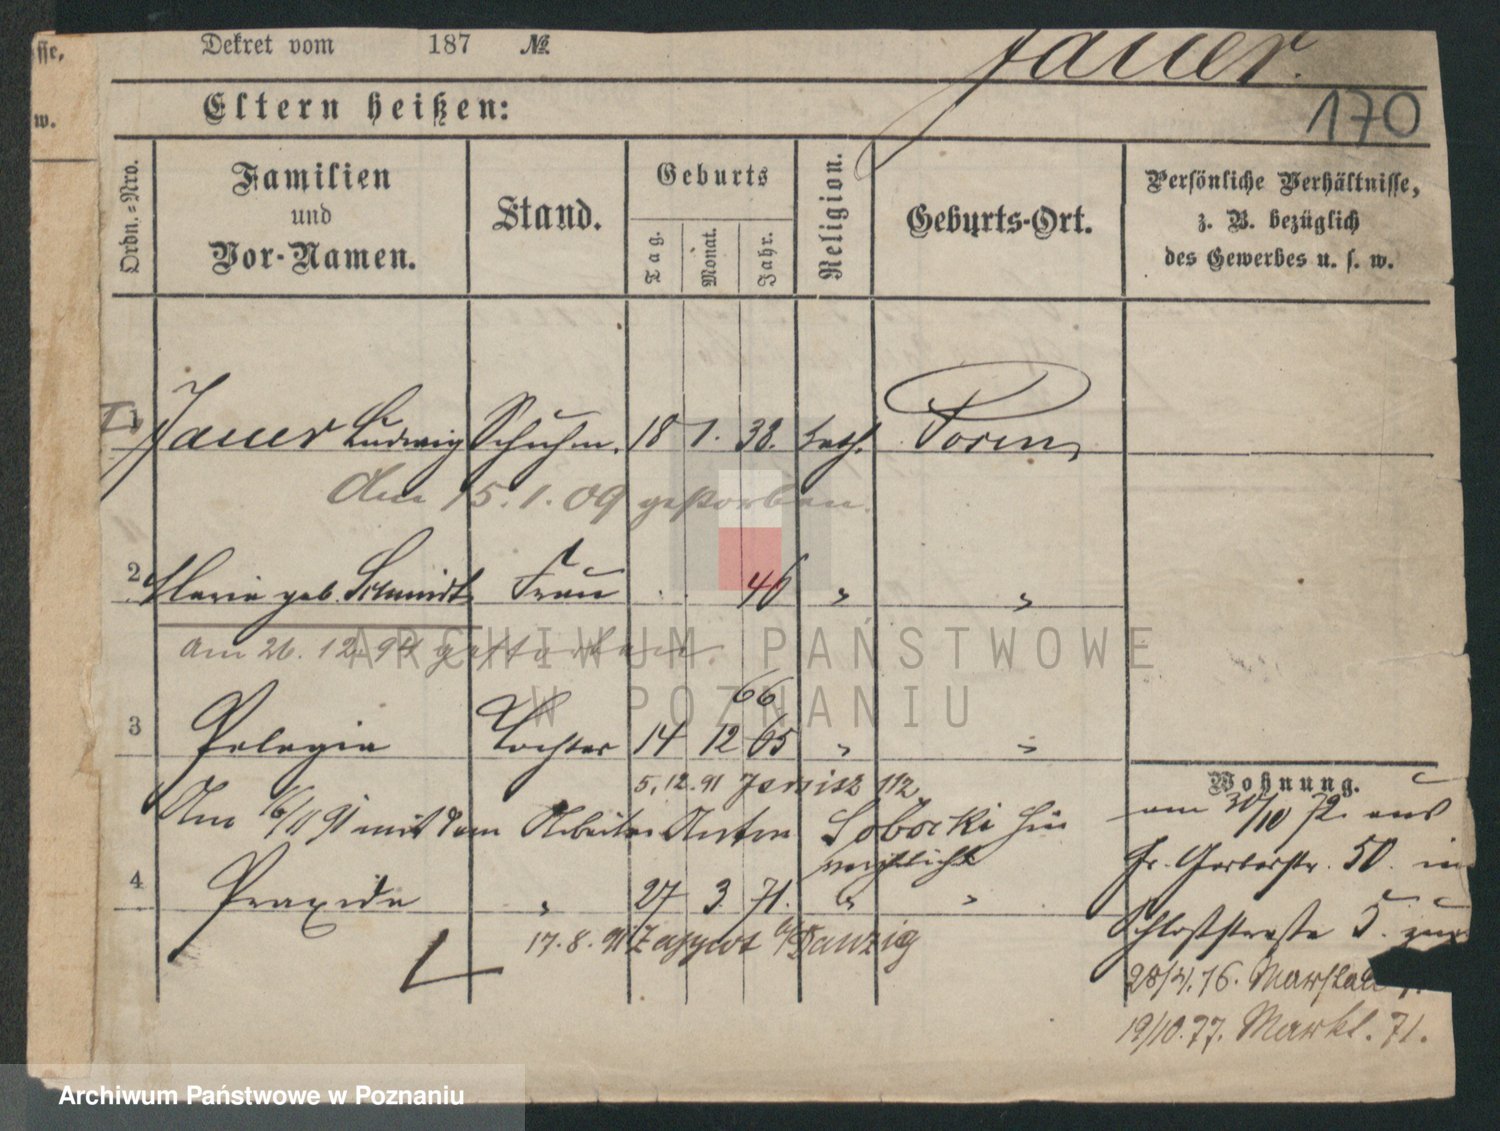 sse,
w.
Dekret vom 187 №
Jauer.
170
Eltern heißen:
Ordn.-Nro.
Familien
und
Vor-Namen.
Stand.
Geburts
Tag.
Monat.
Jahr.
Religion.
Geburts-Ort.
Persönliche Verhältnisse,
z. B. bezüglich
des Gewerbes u. s. w.
1 Jauer Ludwig Schuhm. 18 1. 38. kath. Posen
Am 15.1.09 gestorben.
2 Maria geb. Schmidt Frau 46 " "
am 26.12.94 gestorben.
66
3 Pelagia Tochter 14 12 65 " "
5.12.91 Jersitz 112
Am 16/11 91 mit dem Arbeiter Anton Sobocki hier
verehelicht
4 Praxeda " 27 3 71. " "
17.8.91 Danzig
Wohnung.
am 30/10 72. aus
Gr. Gerberstr. 50. in
Schloßstraße 5.
28/4.76.
19/10.77. Markt. 71.
ARCHIWUM PAŃSTWOWE
W POZNANIU
Archiwum Państwowe w Poznaniu